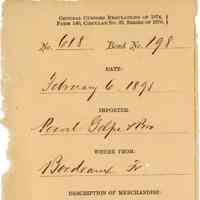 GENERAL CUSTOMS REGULATIONS OF 1874,
FORM 140, CIRCULAR NO. 20, SERIES OF 1876.
No. 618 Bond No. 198
DATE:
February 6, 1891
IMPORTED:
WHERE FROM:
Bordeaux Fr
DESCRIPTION OF MERCHANDISE: